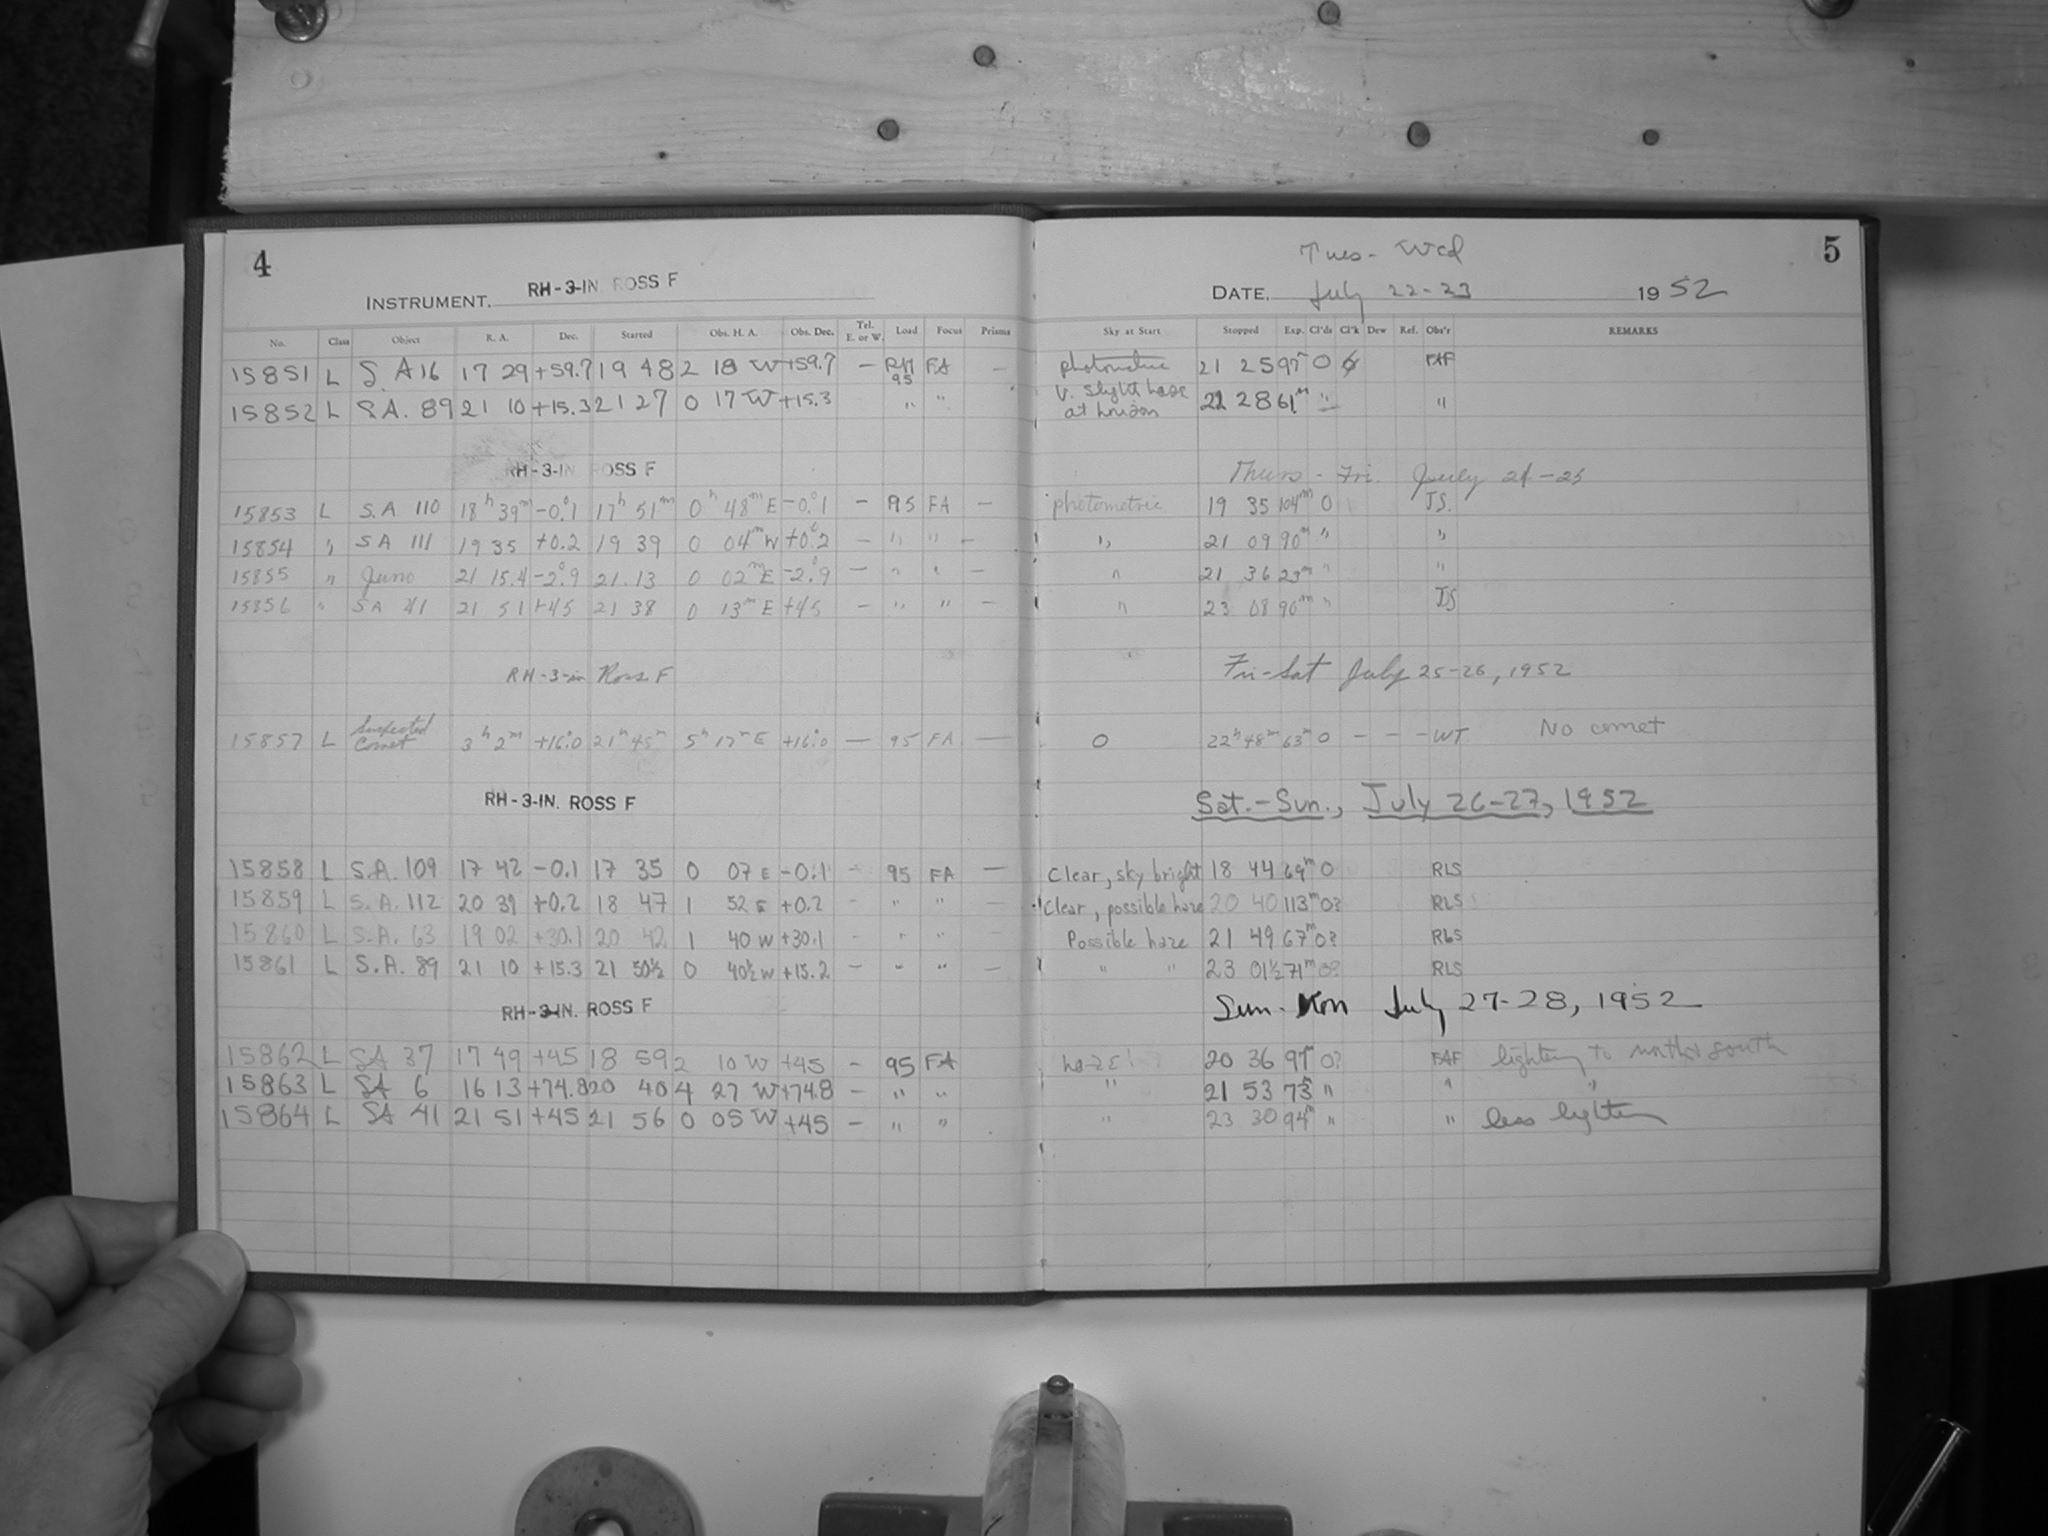 4
INSTRUMENT. RH-3-IN. ROSS F
No. Class Object R. A. Dec. Started Obs. H. A. Obs. Dec. Tel. E. or W. Load Focus Prisms
15851 L S. A 16 17 29 +59.7 19 48 2 18 W +59.7 — RH 95 FA —
15852 L S.A. 89 21 10 +15.3 21 27 0 17 W +15.3 " "
RH-3-IN ROSS F
15853 L S.A 110 18h 39m -0°.1 17h 51m 0h 48m E -0°.1 — 95 FA —
15854 " SA 111 19 35 +0.2 19 39 0 04m W +0°.2 — " " —
15855 " Juno 21 15.4 -2°.9 21.13 0 02m E -2°.9 — " " —
15856 " SA 41 21 51 +45 21 38 0 13m E +45 — " " —
RH-3-in Ross F
15857 L Suspected Comet 3h 2m +16°.0 21h 45m 5h 17m E +16°.0 — 95 FA —
RH-3-IN. ROSS F
15858 L S.A. 109 17 42 -0.1 17 35 0 07 E -0.1 - 95 FA —
15859 L S.A. 112 20 39 +0.2 18 47 1 52 E +0.2 - " " —
15860 L S.A. 63 19 02 +30.1 20 42 1 40 W +30.1 - " " —
15861 L S.A. 89 21 10 +15.3 21 50½ 0 40½ W +15.2 — " " —
RH-3-IN. ROSS F
15862 L SA 37 17 49 +45 18 59 2 10 W +45 — 95 FA
15863 L SA 6 16 13 +74.8 20 40 4 27 W +74.8 — " "
15864 L SA 41 21 51 +45 21 56 0 05 W +45 — " "
5
Tues - Wed
DATE. July 22-23 1952
Sky at Start Stopped Exp. Cl'ds Cl'k Dew Ref. Obs'r REMARKS
photometric 21 25 97m 0 FAF
v. slight haze
at horizon 22 28 61m " "
Thurs - Fri. July 24-25
photometric 19 35 104m 0 JS.
" 21 09 90m " "
" 21 36 23m " "
" 23 08 90m " JS
Fri-Sat July 25-26, 1952
0 22h 48m 63m 0 - - - WT. No comet
Sat.-Sun., July 26-27, 1952
Clear, sky bright 18 44 69m 0 RLS
Clear, possible haze 20 40 113m 0? RLS
Possible haze 21 49 67m 0? RLS
" " 23 01½ 71m 0? RLS
Sun-Mon July 27-28, 1952
haze 20 36 97m 0? FAF lightning to north & south
" 21 53 73 " " "
" 23 30 94m " " less lightning